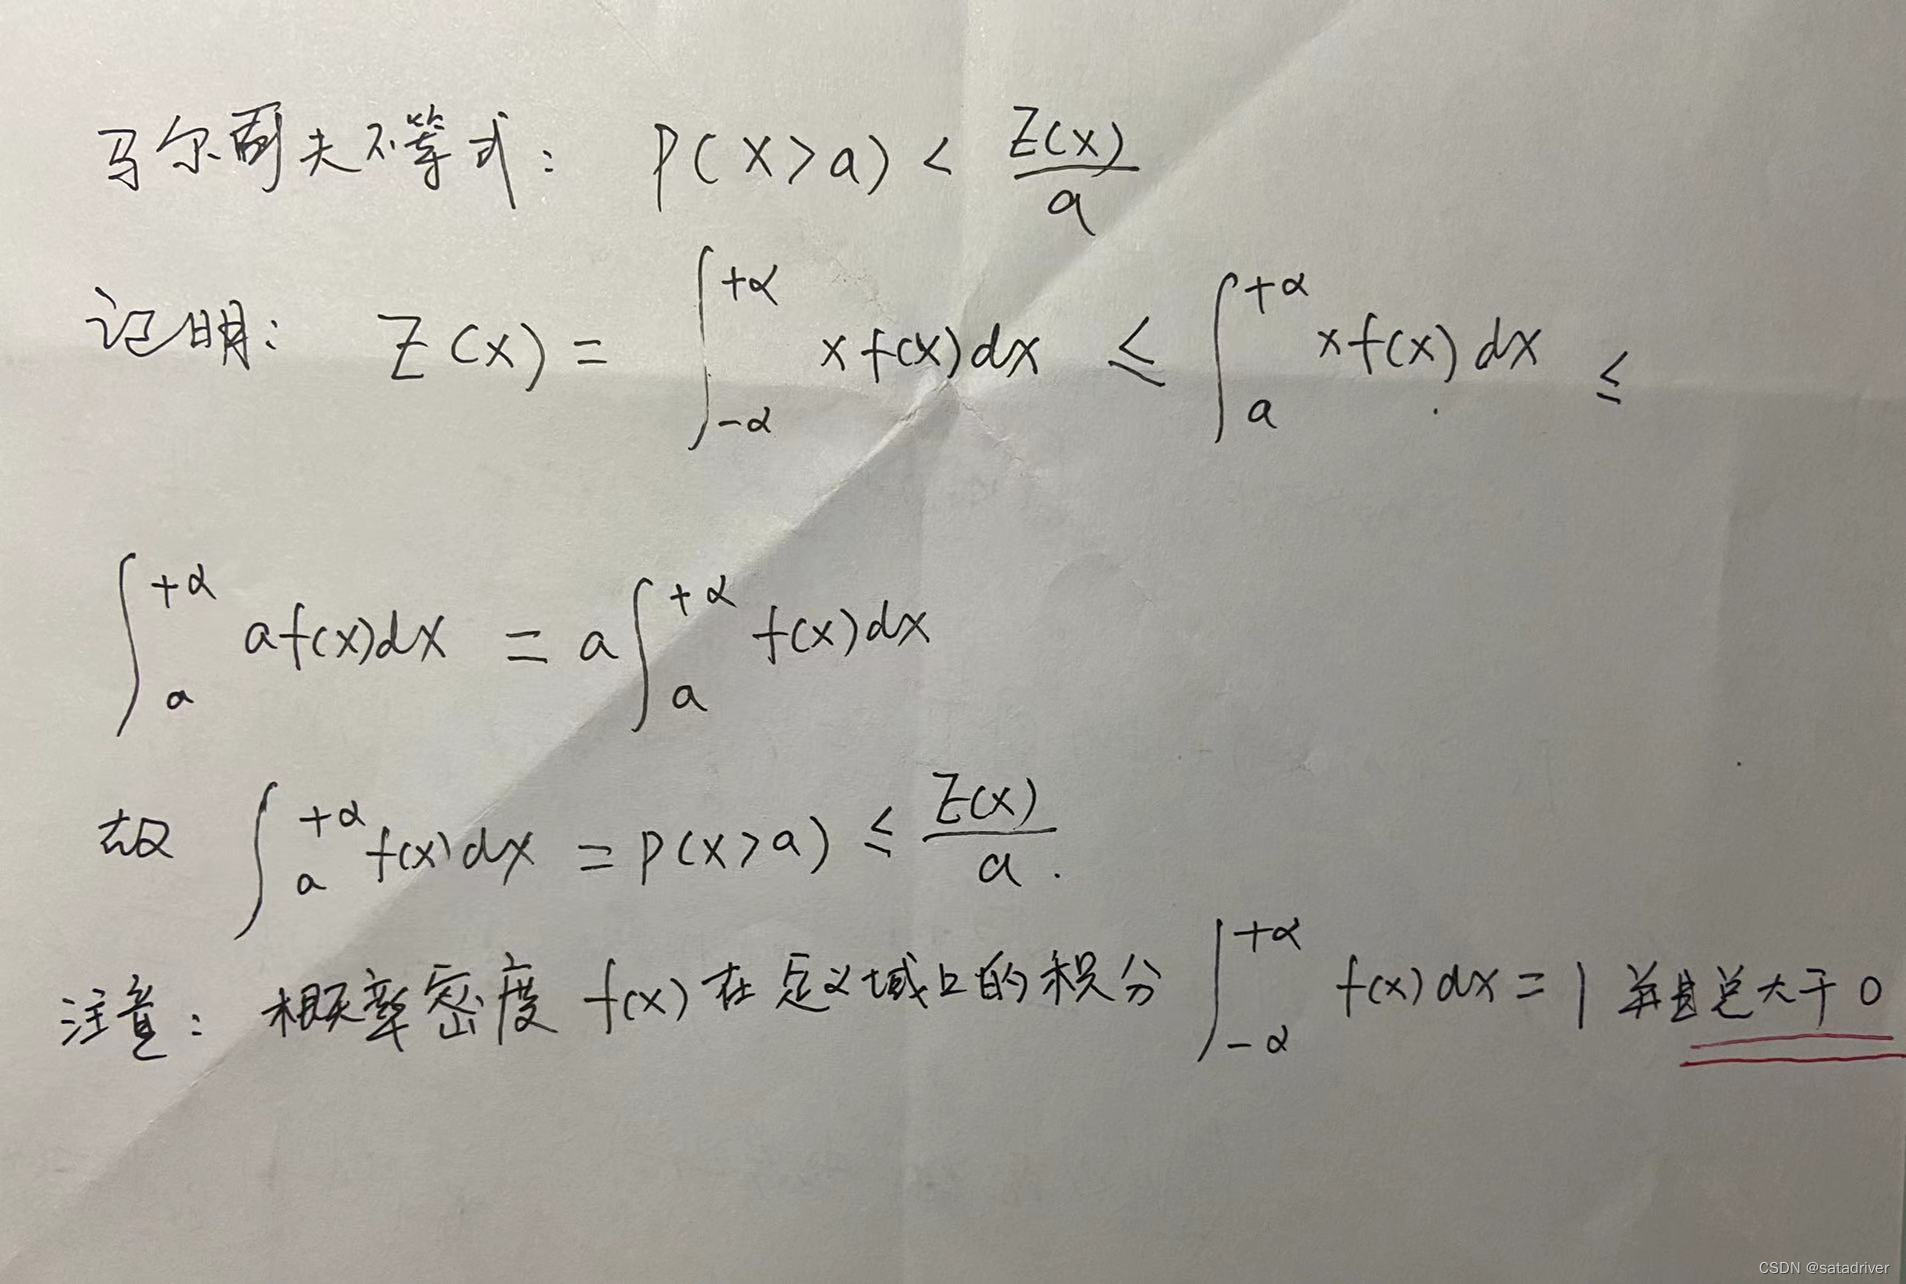 马尔可夫不等式: P(X>a) < E(x)/a
证明: E(x) = ∫_{-α}^{+α} x f(x) dx ≤ ∫_{a}^{+α} x f(x) dx ≤
∫_{a}^{+α} a f(x) dx = a ∫_{a}^{+α} f(x) dx
故 ∫_{a}^{+α} f(x) dx = P(X>a) ≤ E(x)/a.
注意: 概率密度 f(x) 在定义域上的积分 ∫_{-α}^{+α} f(x) dx = 1 并且总大于0
CSDN @satadriver